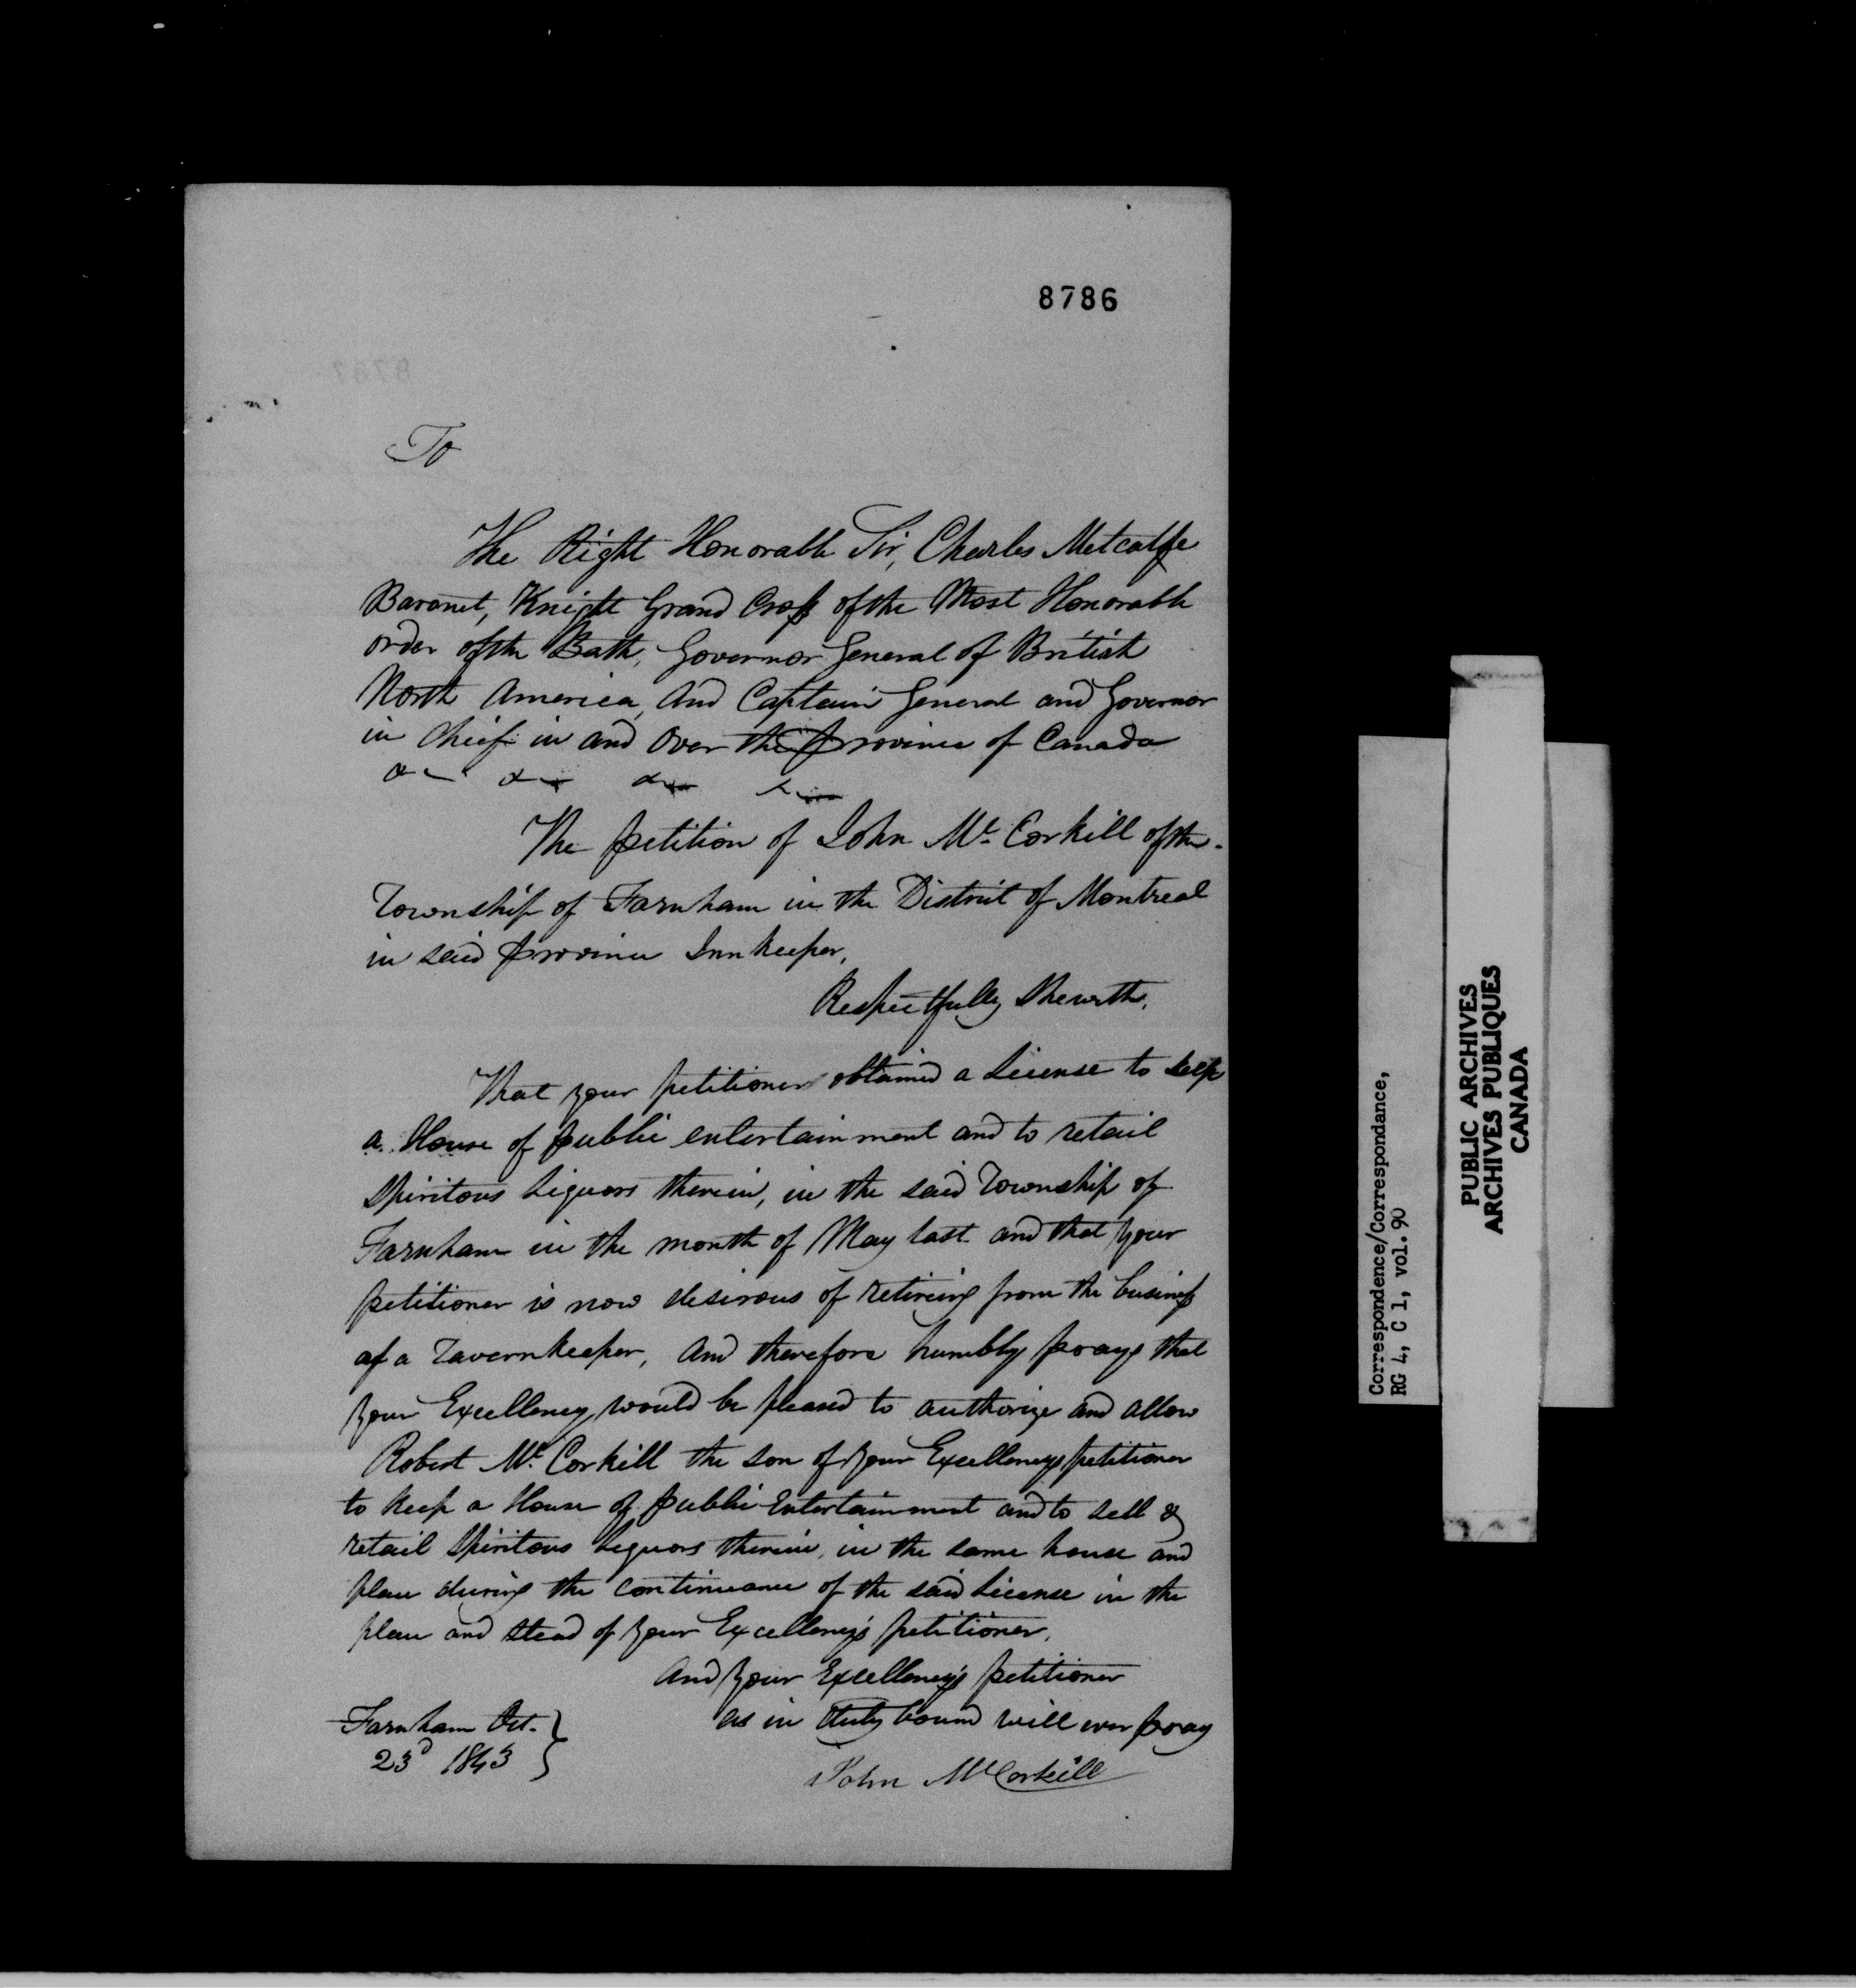 8786
To
The Right Honorable Sir, Charles Metcalfe
Baronet, Knight Grand Cross of the Most Honorable
order of the Bath, Governor General of British
North America, And Captain General and Governor
in Chief in and Over the Province of Canada
&c &c &c &c
The petition of John Mc Corkill of the
Township of Farnham in the District of Montreal
in said province Innkeeper,
Respectfully Sheweth,
That your petitioner obtained a License to keep
a House of public entertainment and to retail
Spiritous Liquors therein, in the said Township of
Farnham in the month of May last and that your
petitioner is now desirous of retiring from the business
of a Tavernkeeper, And therefore humbly prays that
your Excellency would be pleased to authorize and allow
Robert Mc Corkill the son of your Excellencys petitioner
to keep a House of public Entertainment and to sell &
retail Spiritous Liquors therein, in the same house and
place during the continuance of the said License in the
place and stead of your Excellency's petitioner,
And your Excellency's petitioner
as in duty bound will ever pray
Farnham Oct.
23d 1843
John McCorkill
Correspondence/Correspondance,
RG 4, C 1, vol. 90
PUBLIC ARCHIVES
ARCHIVES PUBLIQUES
CANADA